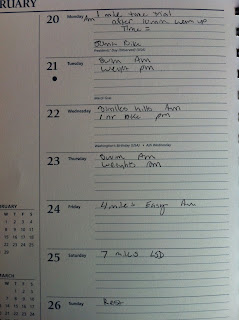 RUARY
20 Monday Am 1 mile time trial
after 10min warm up
Time =
Swim Bike
Presidents' Day (Observed) (USA)
21 Tuesday Swim Am
Weights pm
22 Wednesday 5 miles hills Am
1 hr bike pm
Washington's Birthday (USA) • Ash Wednesday
23 Thursday Swim Am
Weights Am
24 Friday 4 miles Easy Am
25 Saturday 7 miles LSD
26 Sunday Rest
RUARY
W T F S
1 2 3 4
8 9 10 11
15 16 17 18
22 23 24 25
29
MARCH
W T F S